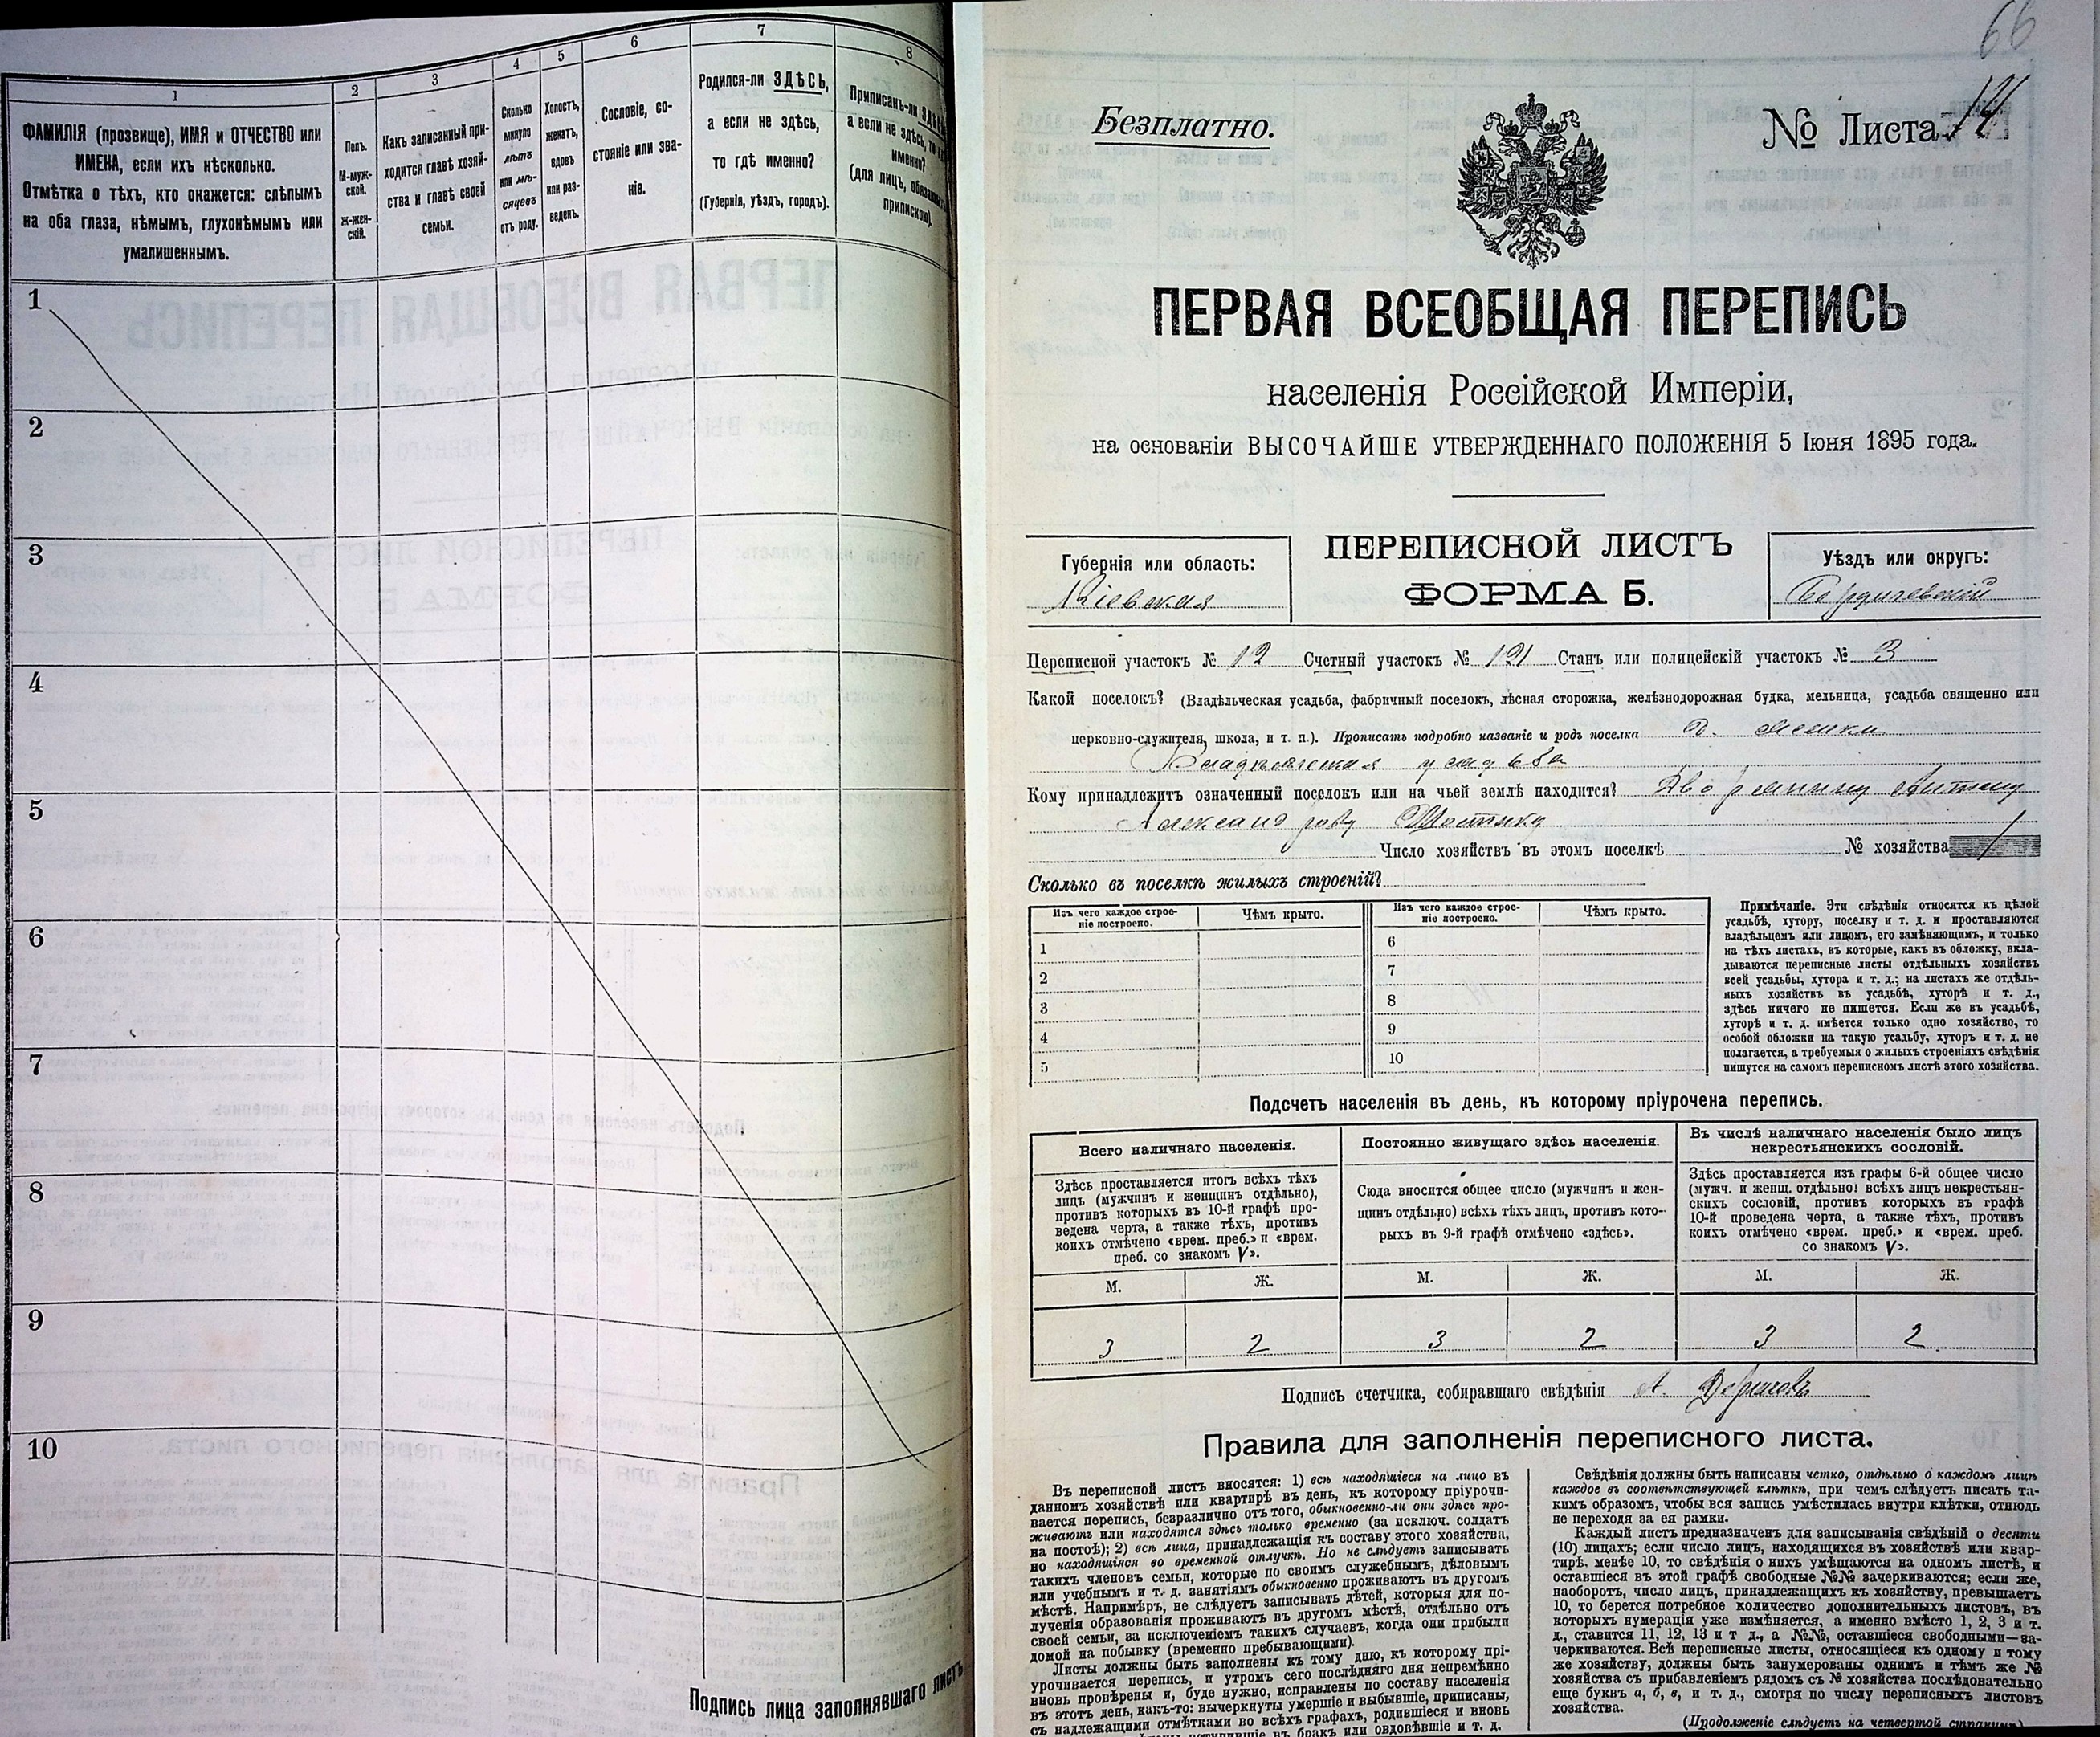 1
2
3
4
5
6
7
8
ФАМИЛІЯ (прозвище), ИМЯ и ОТЧЕСТВО или
ИМЕНА, если ихъ нѣсколько.
Отмѣтка о тѣхъ, кто окажется: слѣпымъ
на оба глаза, нѣмымъ, глухонѣмымъ или
умалишеннымъ.
Полъ.
М-муж-
ской.
Ж-жен-
скій.
Какъ записанный при-
ходится главѣ хозяй-
ства и главѣ своей
семьи.
Сколько
минуло
лѣтъ
или мѣ-
сяцевъ
отъ роду.
Холостъ,
женатъ,
вдовъ
или раз-
веденъ.
Сословіе, со-
стояніе или зва-
ніе.
Родился-ли ЗДѢСЬ,
а если не здѣсь,
то гдѣ именно?
(Губернія, уѣздъ, городъ).
Приписанъ-ли
а если не здѣсь,
именно?
(для лицъ,
припискою).
1
2
3
4
5
6
7
8
9
10
Подпись лица заполнявшаго листъ
66
Безплатно.
№ Листа
ПЕРВАЯ ВСЕОБЩАЯ ПЕРЕПИСЬ
населенія Россійской Имперіи,
на основаніи ВЫСОЧАЙШЕ УТВЕРЖДЕННАГО ПОЛОЖЕНІЯ 5 Іюня 1895 года.
Губернія или область:
Кіевская
ПЕРЕПИСНОЙ ЛИСТЪ
ФОРМА Б.
Уѣздъ или округъ:
Бердичевскій
Переписной участокъ № 12 Счетный участокъ № 121 Станъ или полицейскій участокъ № 3
Какой поселокъ? (Владѣльческая усадьба, фабричный поселокъ, лѣсная сторожка, желѣзнодорожная будка, мельница, усадьба священно или
церковно-служителя, школа, и т. п.). Прописать подробно названіе и родъ поселка
Владѣльческая усадьба
Кому принадлежитъ означенный поселокъ или на чьей землѣ находится? Дворянину
Число хозяйствъ въ этомъ поселкѣ № хозяйства 1
Сколько въ поселкѣ жилыхъ строеній?
Изъ чего каждое строе-
ніе построено.
Чѣмъ крыто.
Изъ чего каждое строе-
ніе построено.
Чѣмъ крыто.
1
2
3
4
5
6
7
8
9
10
Примѣчаніе. Эти свѣдѣнія относятся къ цѣлой
усадьбѣ, хутору, поселку и т. д. и проставляются
владѣльцемъ или лицомъ, его замѣняющимъ, и только
на тѣхъ листахъ, въ которые, какъ въ обложку, вкла-
дываются переписные листы отдѣльныхъ хозяйствъ
всей усадьбы, хутора и т. д.; на листахъ же отдѣль-
ныхъ хозяйствъ въ усадьбѣ, хуторѣ и т. д.,
здѣсь ничего не пишется. Если же въ усадьбѣ,
хуторѣ и т. д. имѣется только одно хозяйство, то
особой обложки на такую усадьбу, хуторъ и т. д. не
полагается, а требуемыя о жилыхъ строеніяхъ свѣдѣнія
пишутся на самомъ переписномъ листѣ этого хозяйства.
Подсчетъ населенія въ день, къ которому пріурочена перепись.
Всего наличнаго населенія.
Здѣсь проставляется итогъ всѣхъ тѣхъ
лицъ (мужчинъ и женщинъ отдѣльно),
противъ которыхъ въ 10-й графѣ про-
ведена черта, а также тѣхъ, противъ
коихъ отмѣчено «врем. преб.» и «врем.
преб. со знакомъ V».
Постоянно живущаго здѣсь населенія.
Сюда вносится общее число (мужчинъ и жен-
щинъ отдѣльно) всѣхъ тѣхъ лицъ, противъ кото-
рыхъ въ 9-й графѣ отмѣчено «здѣсь».
Въ числѣ наличнаго населенія было лицъ
некрестьянскихъ сословій.
Здѣсь проставляется изъ графы 6-й общее число
(мужч. и женщ. отдѣльно) всѣхъ лицъ некрестьян-
скихъ сословій, противъ которыхъ въ графѣ
10-й проведена черта, а также тѣхъ, противъ
коихъ отмѣчено «врем. преб.» и «врем. преб.
со знакомъ V».
М. Ж. М. Ж. М. Ж.
3 2 3 2 3 2
Подпись счетчика, собиравшаго свѣдѣнія А.
Правила для заполненія переписного листа.
Въ переписной листъ вносятся: 1) всѣ находящіеся на лицо въ
данномъ хозяйствѣ или квартирѣ въ день, къ которому пріурочи-
вается перепись, безразлично отъ того, обыкновенно-ли они здѣсь про-
живаютъ или находятся здѣсь только временно (за исключ. солдатъ
на постоѣ); 2) всѣ лица, принадлежащія къ составу этого хозяйства,
но находящіяся во временной отлучкѣ. Но не слѣдуетъ записывать
такихъ членовъ семьи, которые по своимъ служебнымъ, дѣловымъ
или учебнымъ и т. д. занятіямъ обыкновенно проживаютъ въ другомъ
мѣстѣ. Напримѣръ, не слѣдуетъ записывать дѣтей, которыя для по-
лученія образованія проживаютъ въ другомъ мѣстѣ, отдѣльно отъ
своей семьи, за исключеніемъ такихъ случаевъ, когда они прибыли
домой на побывку (временно пребывающими).
Листы должны быть заполнены къ тому дню, къ которому прі-
урочивается перепись, и утромъ сего послѣдняго дня непремѣнно
вновь провѣрены и, буде нужно, исправлены по составу населенія
въ этотъ день, какъ-то: вычеркнуты умершіе и выбывшіе, приписаны,
съ надлежащими отмѣтками во всѣхъ графахъ, родившіеся и вновь
въ бракъ или овдовѣвшіе и т. д.
Свѣдѣнія должны быть написаны четко, отдѣльно о каждомъ лицѣ
каждое въ соотвѣтствующей клѣткѣ, при чемъ слѣдуетъ писать та-
кимъ образомъ, чтобы вся запись умѣстилась внутри клѣтки, отнюдь
не переходя за ея рамки.
Каждый листъ предназначенъ для записыванія свѣдѣній о десяти
(10) лицахъ; если число лицъ, находящихся въ хозяйствѣ или квар-
тирѣ, менѣе 10, то свѣдѣнія о нихъ умѣщаются на одномъ листѣ, и
оставшіеся въ этой графѣ свободные №№ зачеркиваются; если же,
наоборотъ, число лицъ, принадлежащихъ къ хозяйству, превышаетъ
10, то берется потребное количество дополнительныхъ листовъ, въ
которыхъ нумерація уже измѣняется, а именно вмѣсто 1, 2, 3 и т.
д., ставится 11, 12, 13 и т д., а №№, оставшіеся свободными—за-
черкиваются. Всѣ переписные листы, относящіеся къ одному и тому
же хозяйству, должны быть занумерованы однимъ и тѣмъ же №
хозяйства съ прибавленіемъ рядомъ съ № хозяйства последовательно
еще буквъ а, б, в, и т. д., смотря по числу переписныхъ листовъ
хозяйства.
(Продолженіе слѣдуетъ на четвертой страницѣ)